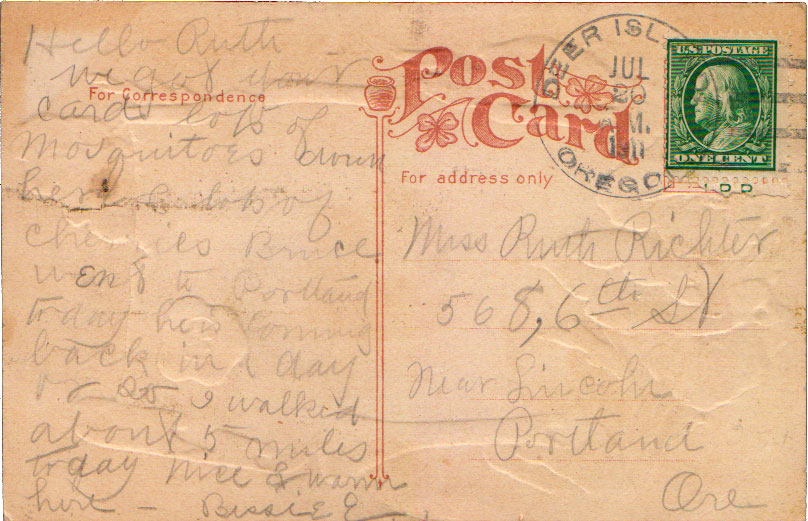 Hello Ruth
we got your
For Correspondence
card lots of
Mosquitoes down
here lots of
cherries Bruce
went to Portland
today he is Coming
back in a day
or so I walked
about 5 miles
today Nice & warm
here - Bessie E.
Post
Card
For address only
DEER ISL
JUL
A.M.
1911
OREGON
U.S. POSTAGE
ONE CENT
Miss Ruth Richter
568, 6th St
Near Lincoln
Portland
Ore